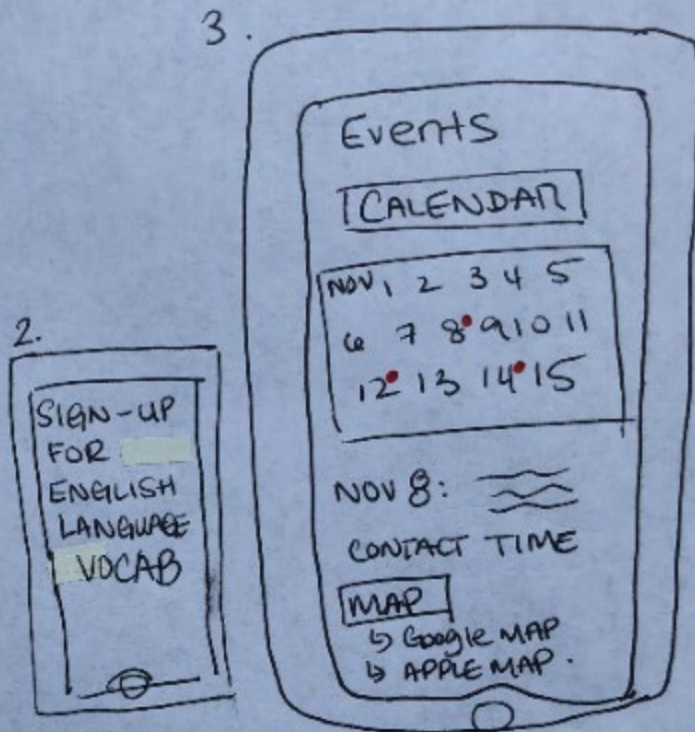 2.
SIGN-UP
FOR
ENGLISH
LANGUAGE
VOCAB
3.
Events
CALENDAR
NOV 1 2 3 4 5
6 7 8 9 10 11
12 13 14 15
NOV 8:
CONTACT TIME
MAP
↳ Google MAP
↳ APPLE MAP.